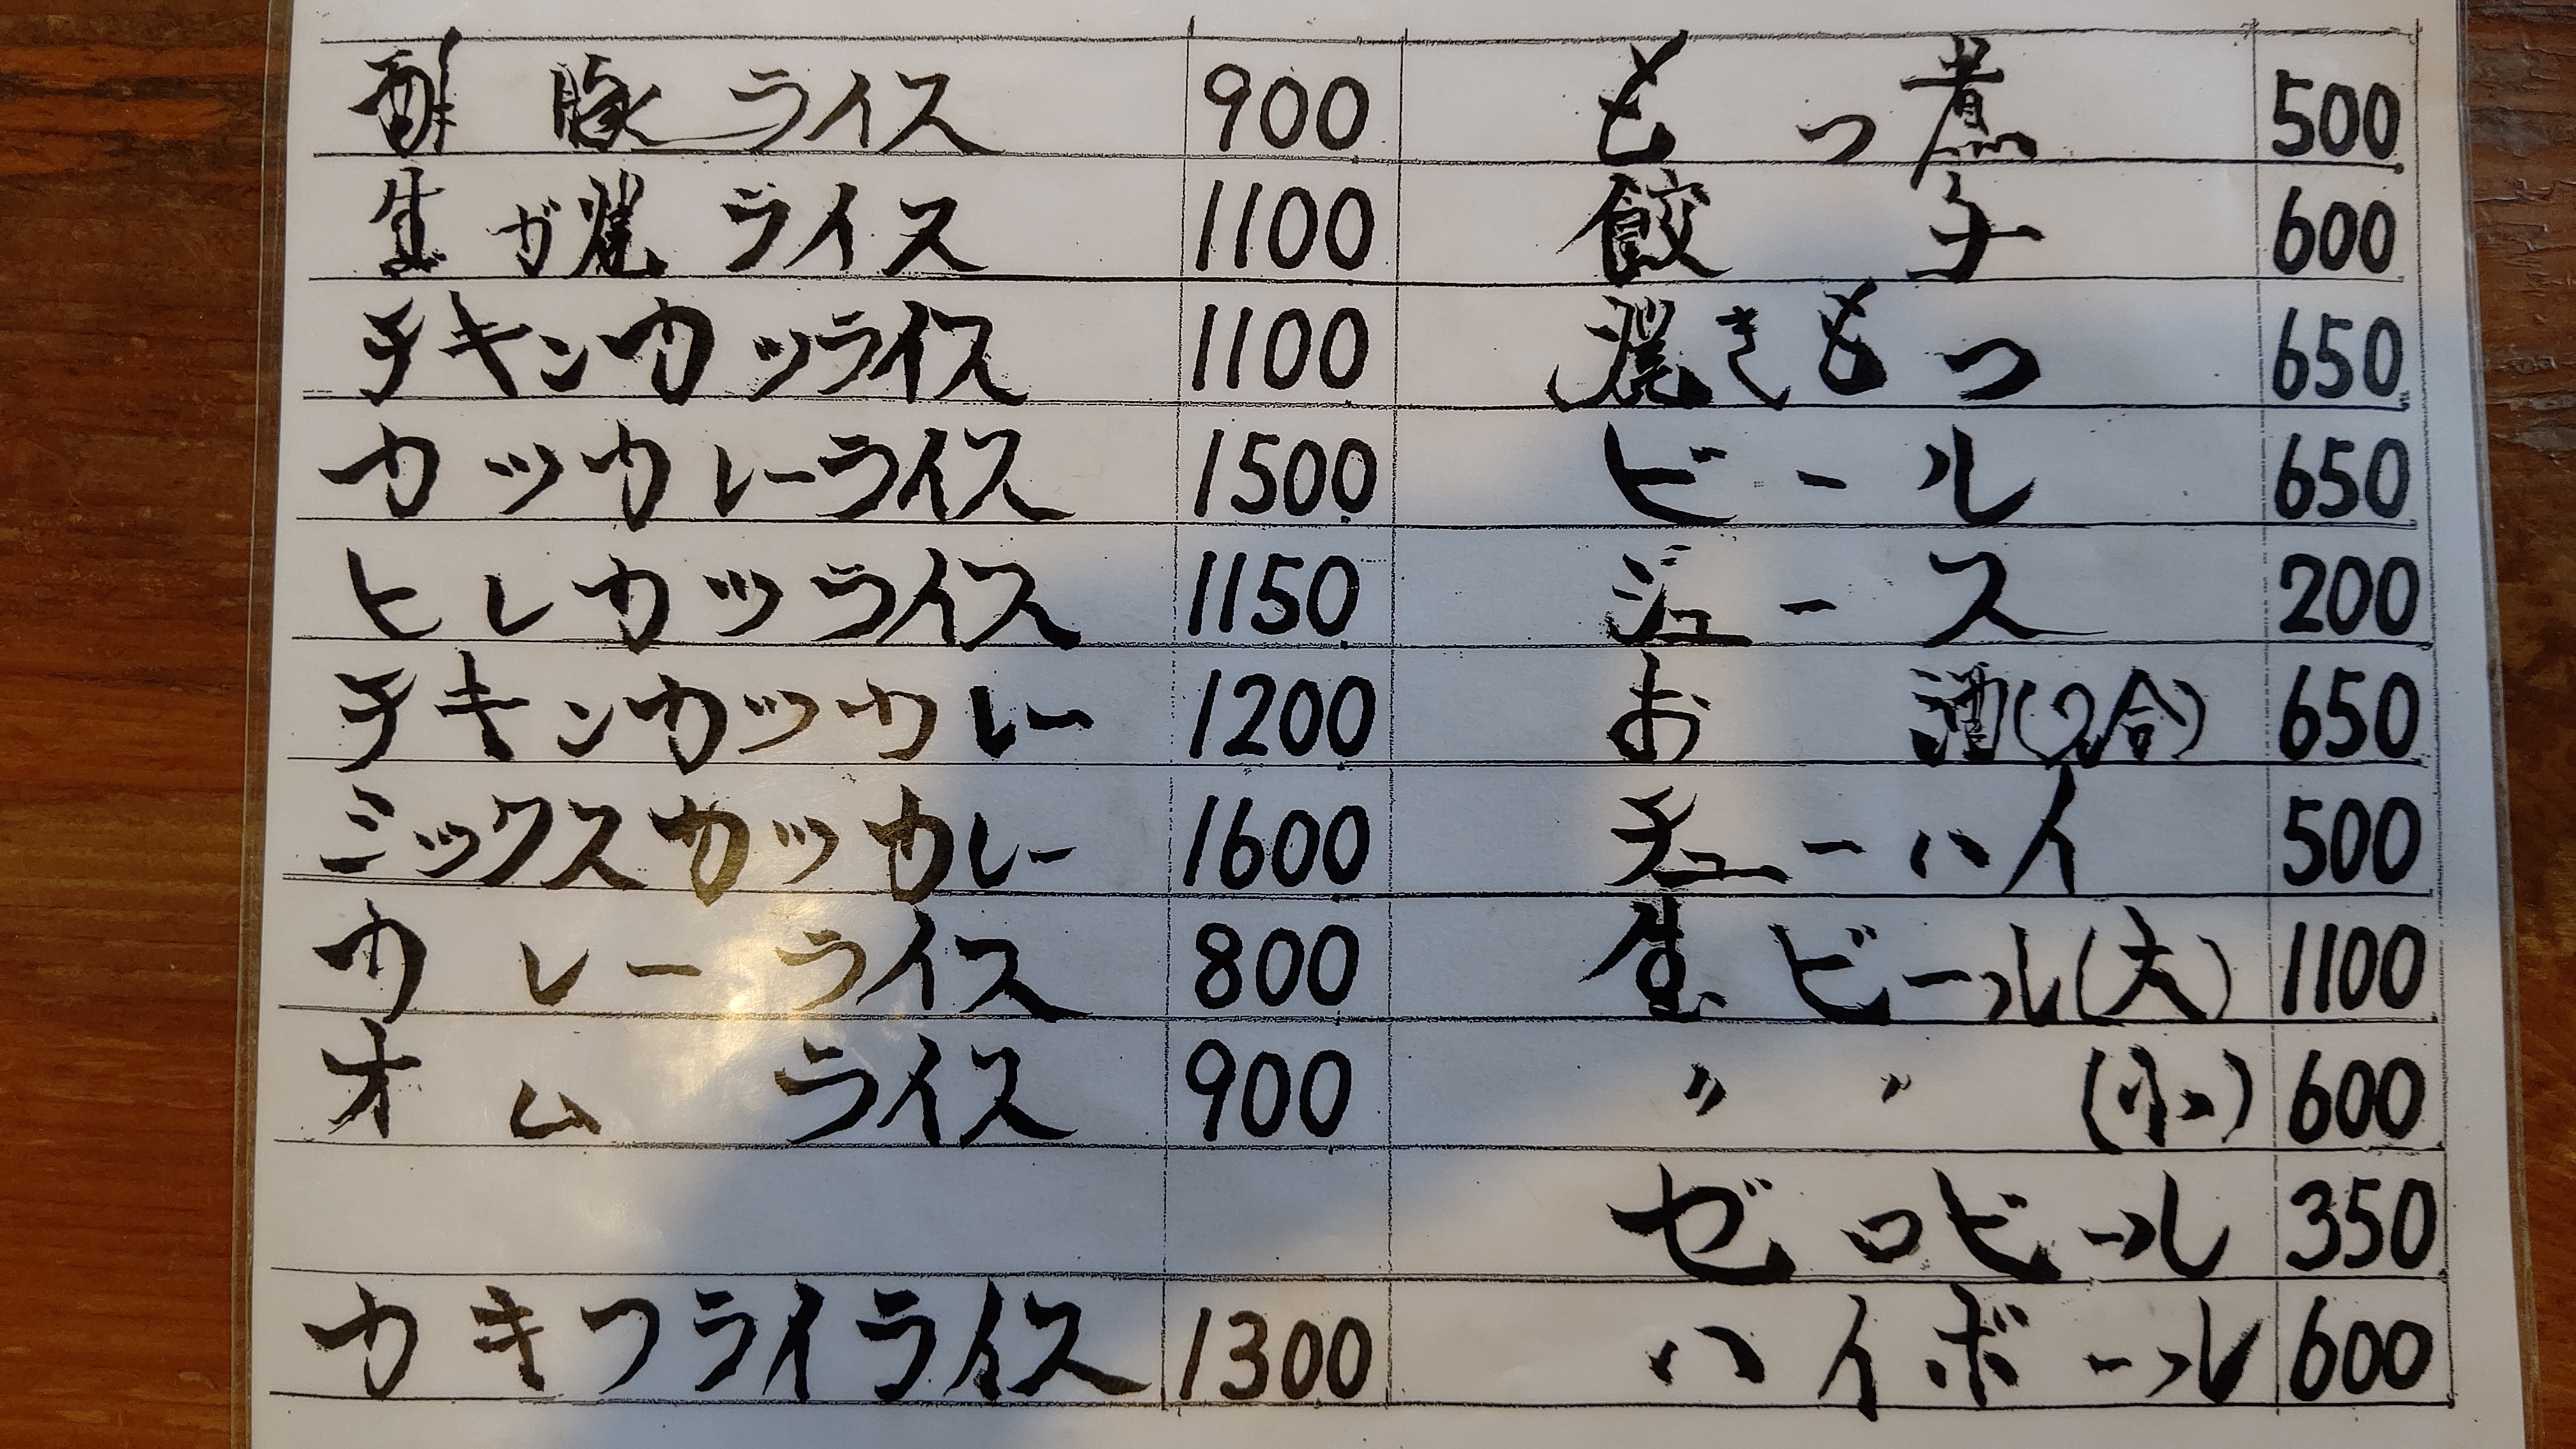 酢豚ライス 900
生ガ焼ライス 1100
チキンカツライス 1100
カツカレーライス 1500
ヒレカツライス 1150
チキンカツカレー 1200
ミックスカツカレー 1600
カレーライス 800
オムライス 900
カキフライライス 1300
もつ煮 500
餃子 600
焼きもつ 650
ビール 650
ジュース 200
お酒(2合) 650
チューハイ 500
生ビール(大) 1100
〃 〃 (小) 600
ゼロビール 350
ハイボール 600